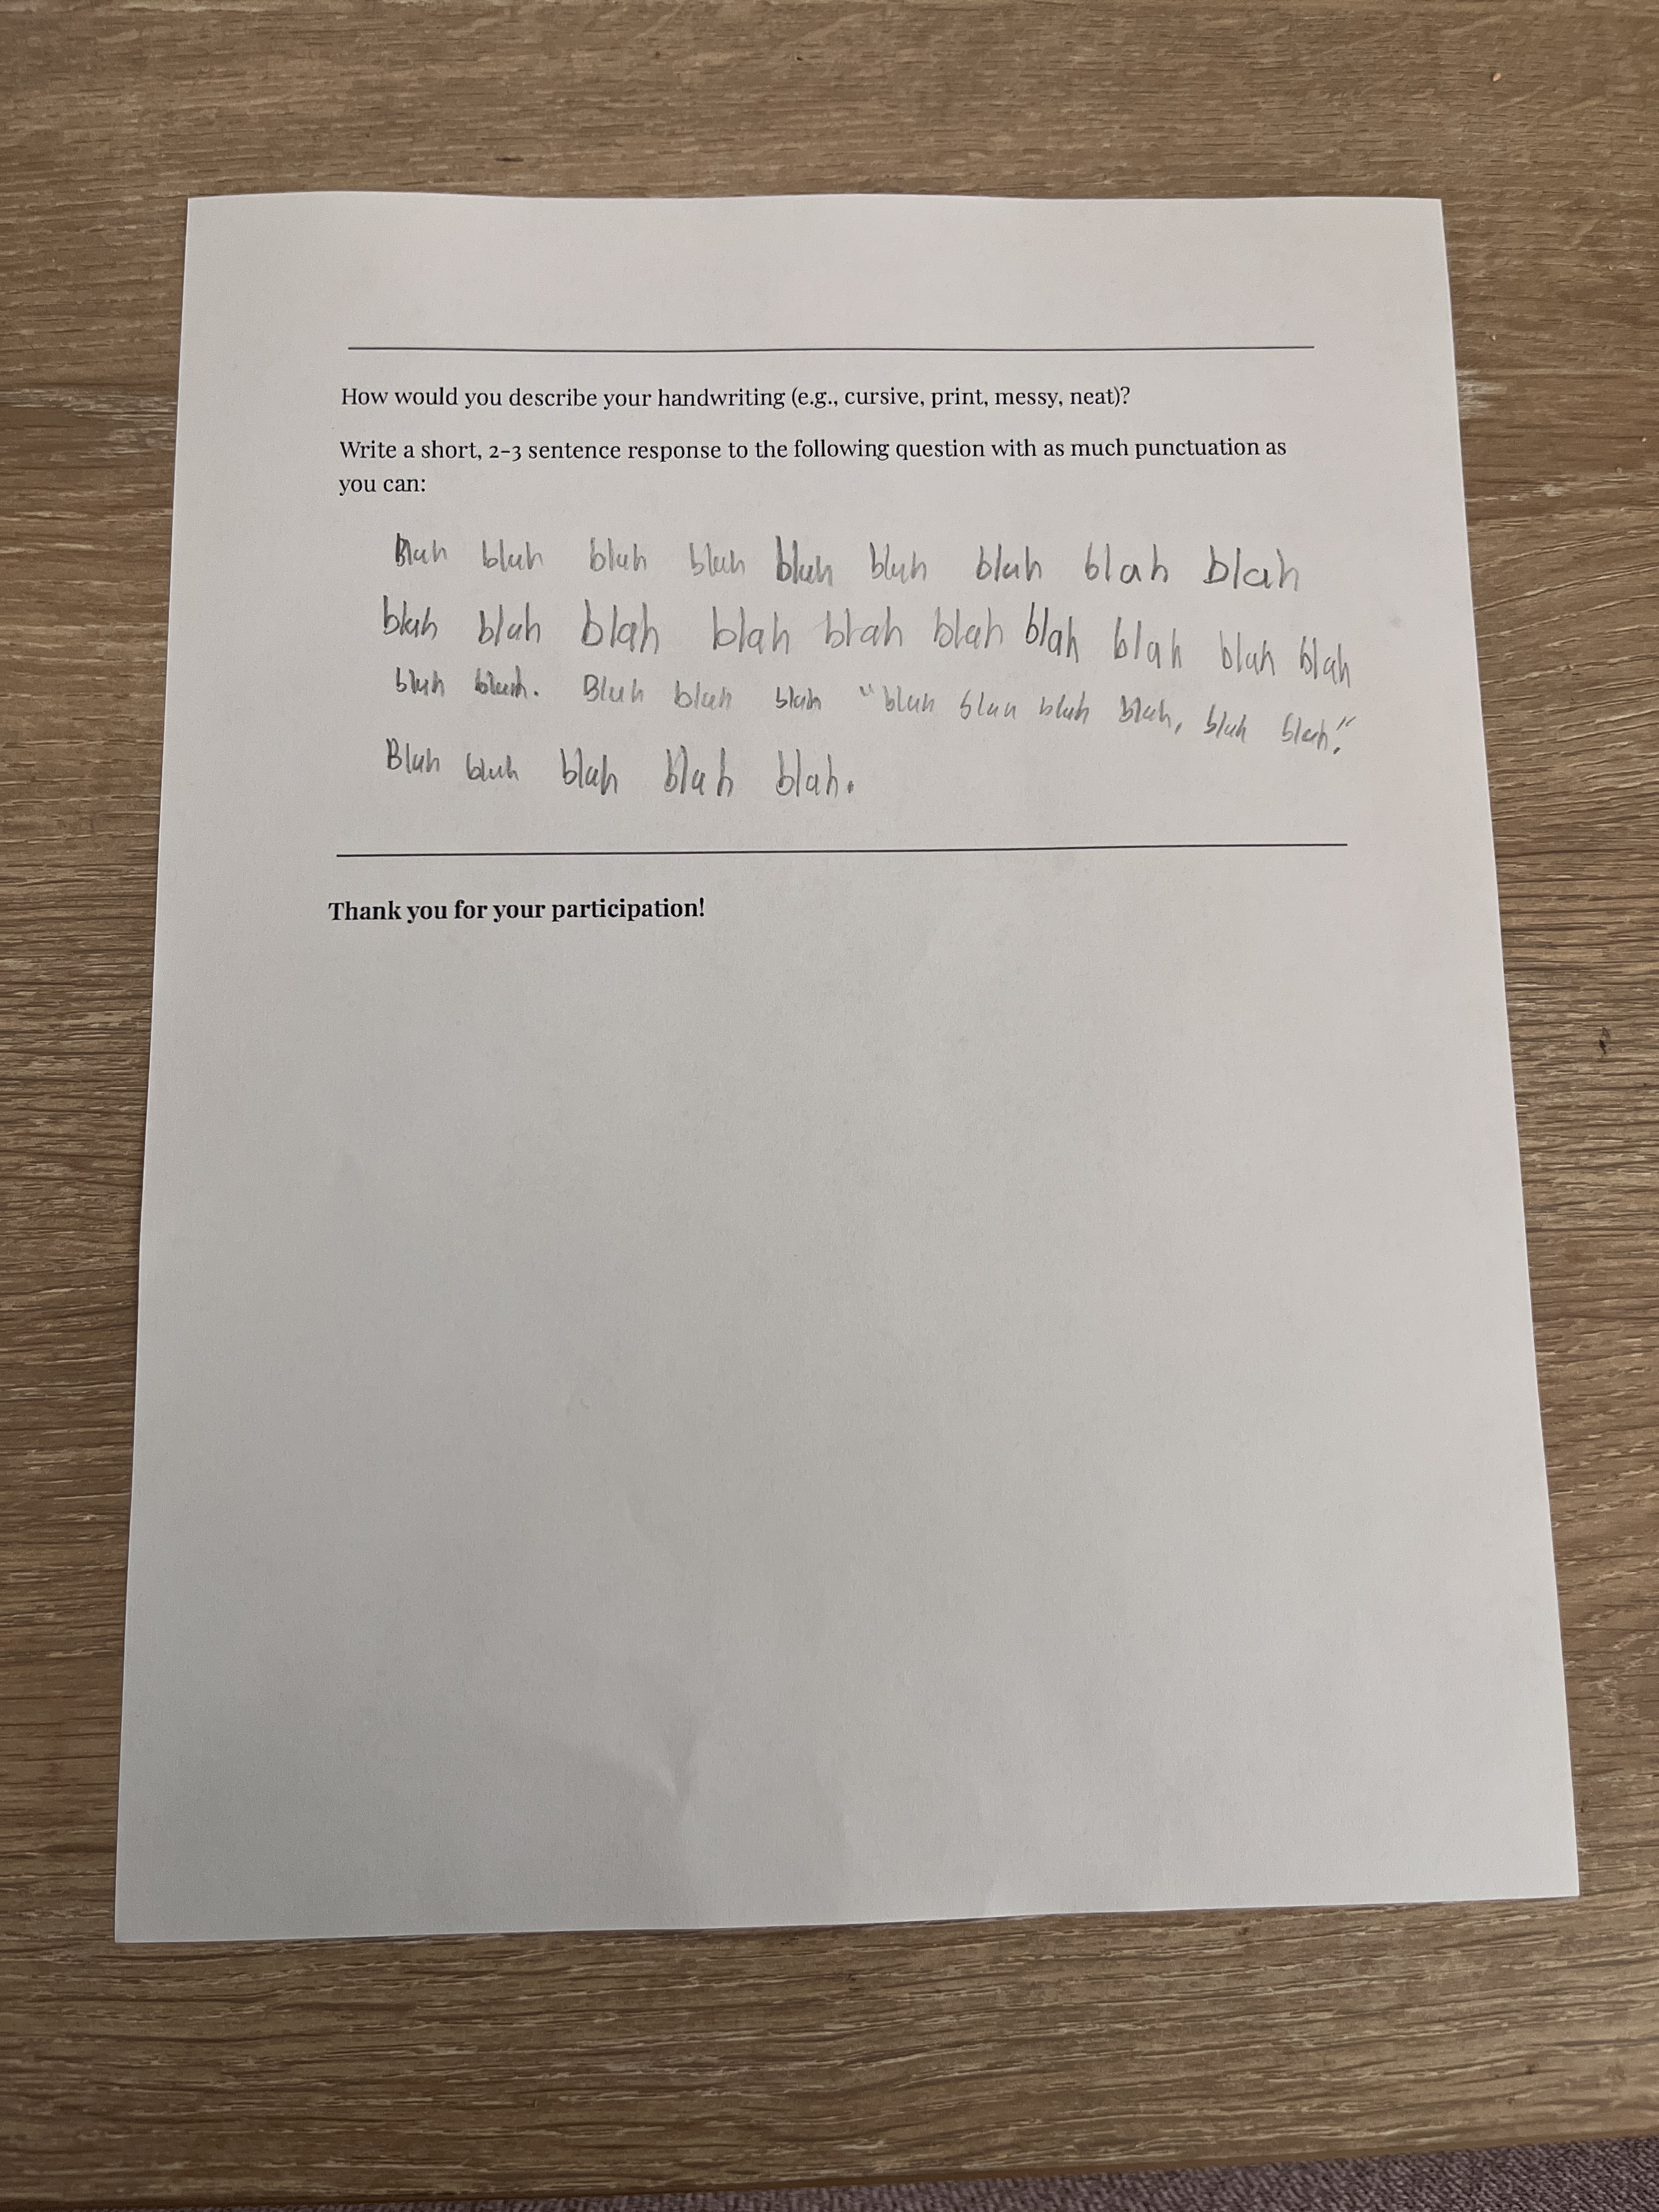 How would you describe your handwriting (e.g., cursive, print, messy, neat)?
Write a short, 2-3 sentence response to the following question with as much punctuation as
you can:
Blah blah blah blah blah blah blah blah blah
blah blah blah blah blah blah blah blah blah blah
blah blah. Blah blah blah "blah blah blah blah, blah blah."
Blah blah blah blah blah.
Thank you for your participation!